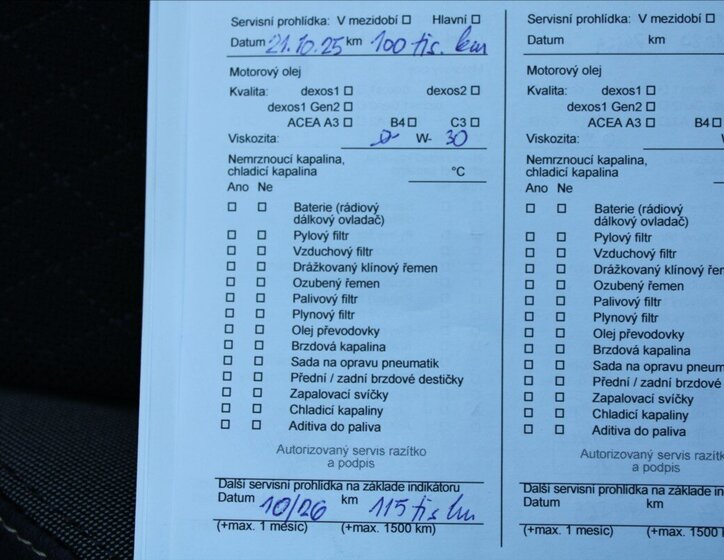 Servisní prohlídka: V mezidobí □ Hlavní □
Datum 21.10.25 km 100 tis. km
Motorový olej
Kvalita: dexos1 □ dexos2 □
dexos1 Gen2 □
ACEA A3 □ B4 □ C3 □
Viskozita: W- 30
Nemrznoucí kapalina,
chladicí kapalina °C
Ano Ne
□ □ Baterie (rádiový
dálkový ovladač)
□ □ Pylový filtr
□ □ Vzduchový filtr
□ □ Drážkovaný klínový řemen
□ □ Ozubený řemen
□ □ Palivový filtr
□ □ Plynový filtr
□ □ Olej převodovky
□ □ Brzdová kapalina
□ □ Sada na opravu pneumatik
□ □ Přední / zadní brzdové destičky
□ □ Zapalovací svíčky
□ □ Chladicí kapaliny
□ □ Aditiva do paliva
Autorizovaný servis razítko
a podpis
Další servisní prohlídka na základe indikátoru
Datum 10/26 km 115 tis km
(+max. 1 měsíc) (+max. 1500 km)
Servisní prohlídka: V mezidobí □
Datum km
Motorový olej
Kvalita: dexos1 □
dexos1 Gen2 □
ACEA A3 □ B4 □
Viskozita:
Nemrznoucí kapalina,
chladicí kapalina
Ano Ne
□ □ Baterie (rádiový
dálkový ovladač)
□ □ Pylový filtr
□ □ Vzduchový filtr
□ □ Drážkovaný klínový řem
□ □ Ozubený řemen
□ □ Palivový filtr
□ □ Plynový filtr
□ □ Olej převodovky
□ □ Brzdová kapalina
□ □ Sada na opravu pneum
□ □ Přední / zadní brzdové
□ □ Zapalovací svíčky
□ □ Chladicí kapaliny
□ □ Aditiva do paliva
Autorizovaný servis
a podpis
Další servisní prohlídka na základe in
Datum km
(+max. 1 měsíc) (+max. 1500